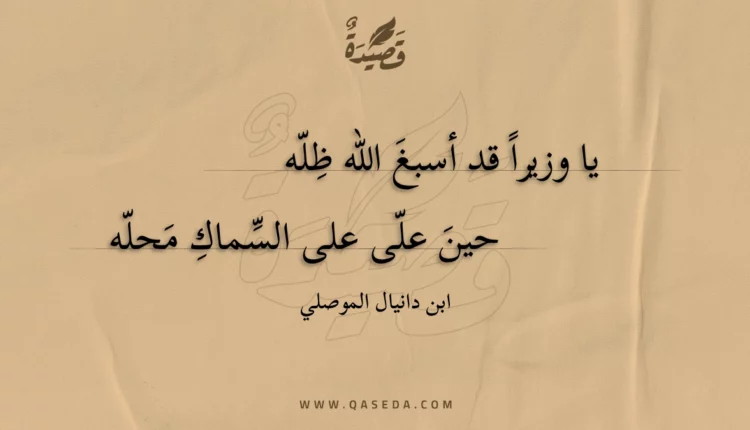 قَصِيْدَةٌ
يا وزيراً قد أسبغَ الله ظِلّه
حينَ علّى على السِّماكِ مَحلّه
ابن دانيال الموصلي
WWW.QASEDA.COM